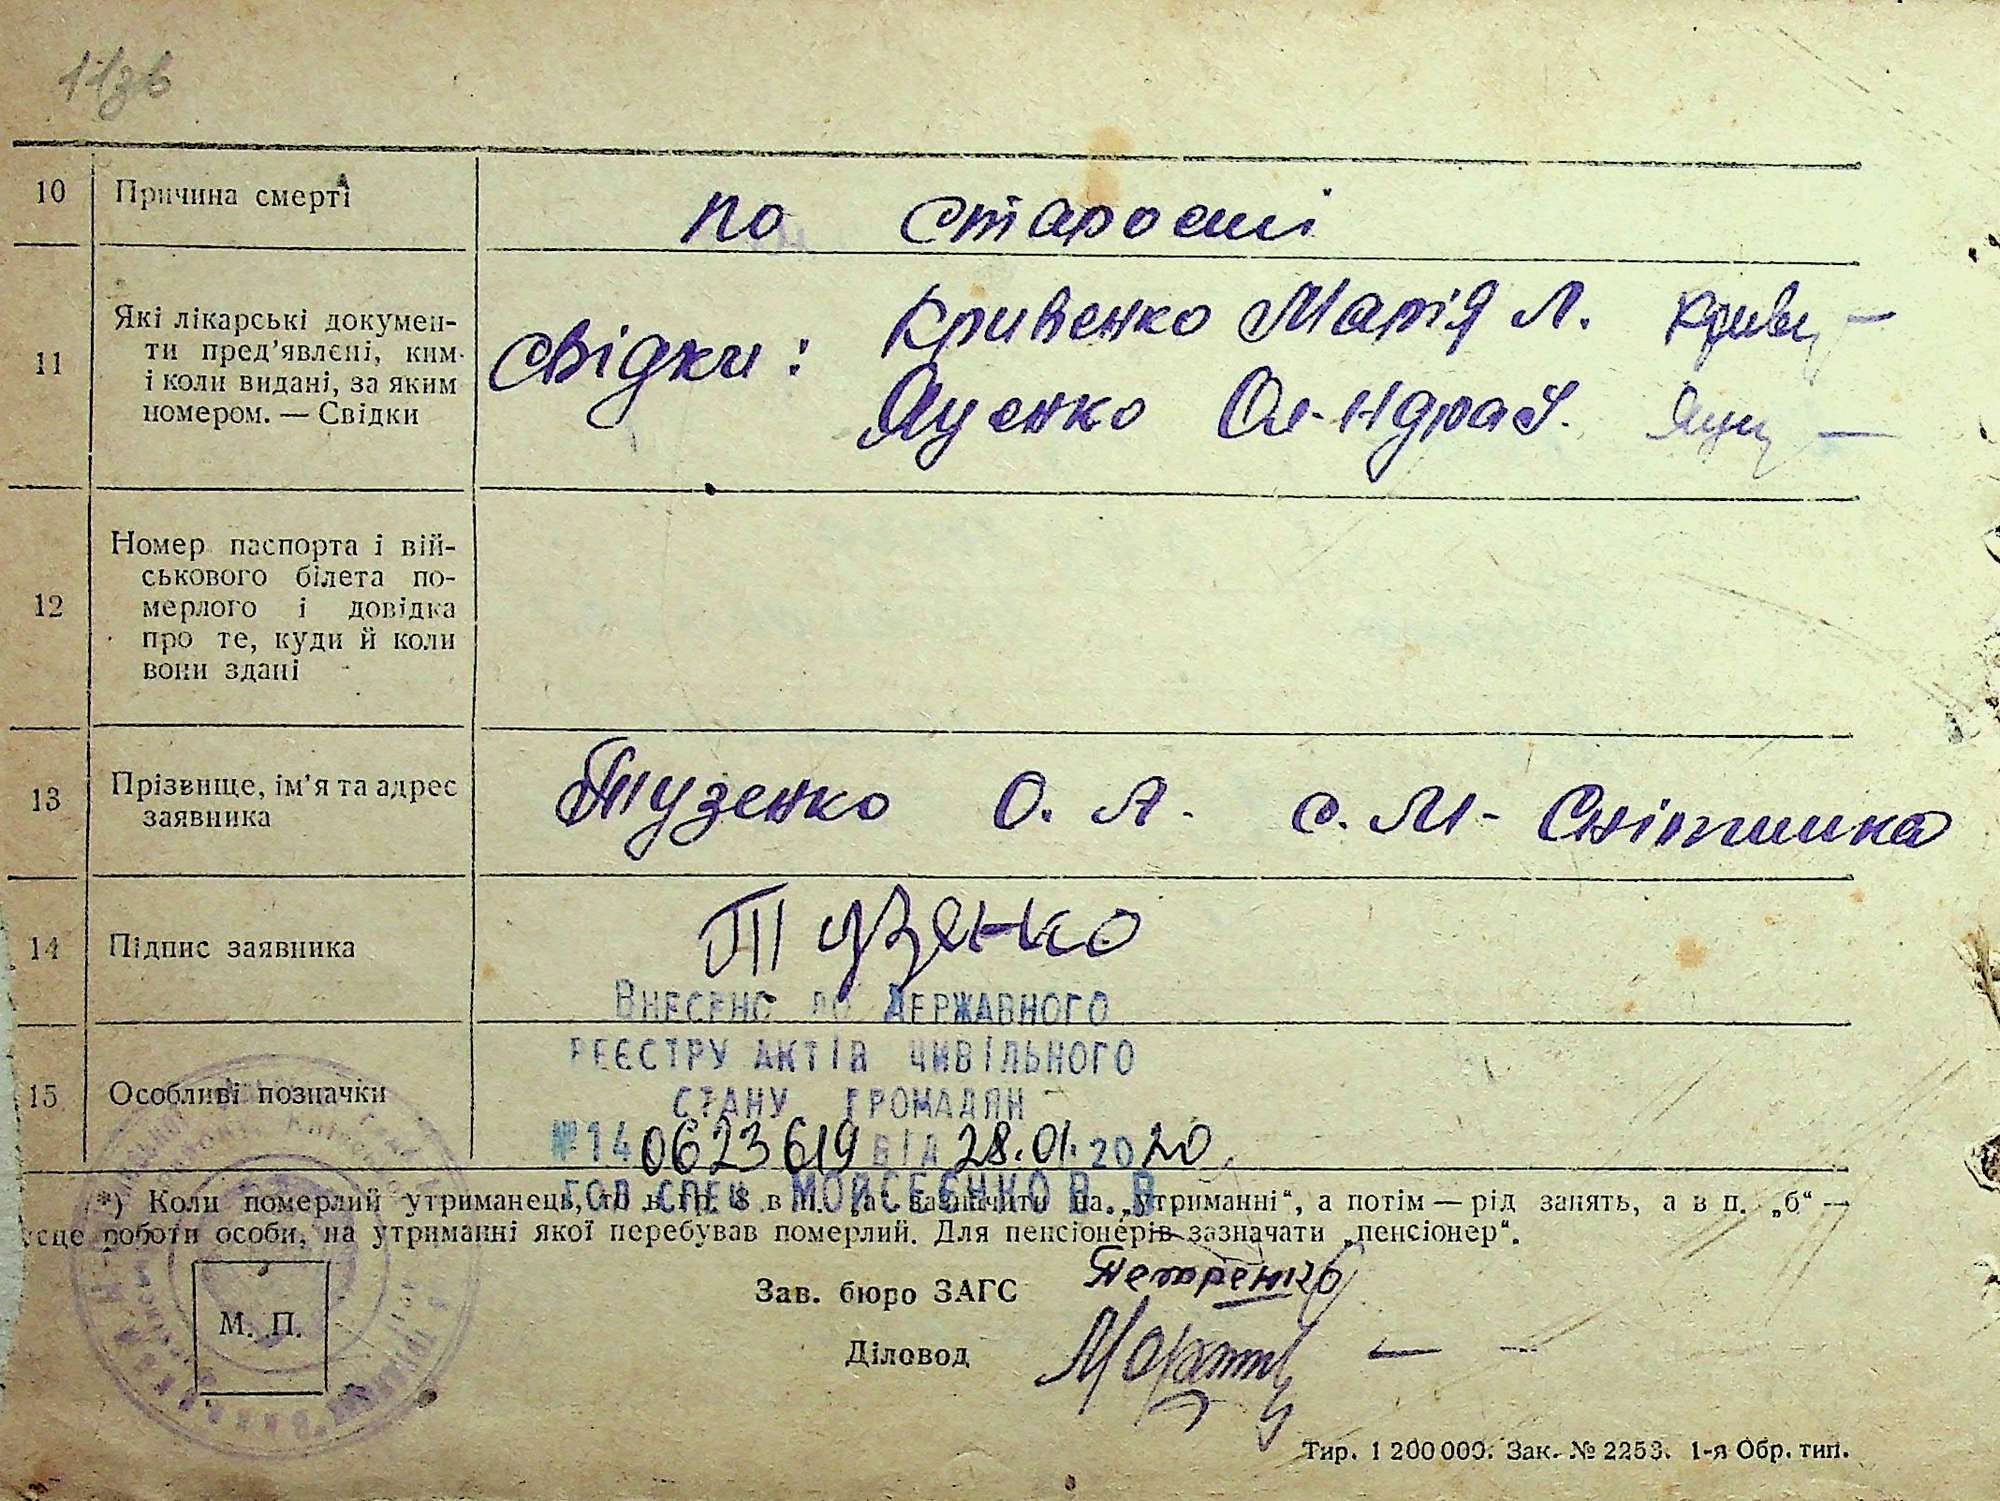 11зв
10 Причина смерті по старості
11 Які лікарські докумен-
ти пред'явлені, ким
і коли видані, за яким
номером. — Свідки
Свідки: Кривенко Марія Л.
Яценко Ол-ндра
12 Номер паспорта і вій-
ськового білета по-
мерлого і довідка
про те, куди й коли
вони здані
13 Прізвище, ім'я та адрес
заявника
Тузенко О. А. с. М-Снітинка
14 Підпис заявника Тузенко
ВНЕСЕНО ДО ДЕРЖАВНОГО
РЕЄСТРУ АКТІВ ЦИВІЛЬНОГО
15 Особливі позначки
СТАНУ ГРОМАДЯН
№140623619 ВІД 28.01.2020
ГОЛ.СПЕЦ. МОЙСЕЄНКО В. В.
*) Коли померлий утриманець, то в гр. 8 в п. „а" зазначити „на утриманні“, а потім — рід занять, а в п. „б“ —
місце роботи особи, на утриманні якої перебував померлий. Для пенсіонерів зазначати „пенсіонер“.
Зав. бюро ЗАГС Петренко
М. П.
Діловод
Тир. 1 200 000. Зак. № 2253. 1-я Обр. тип.